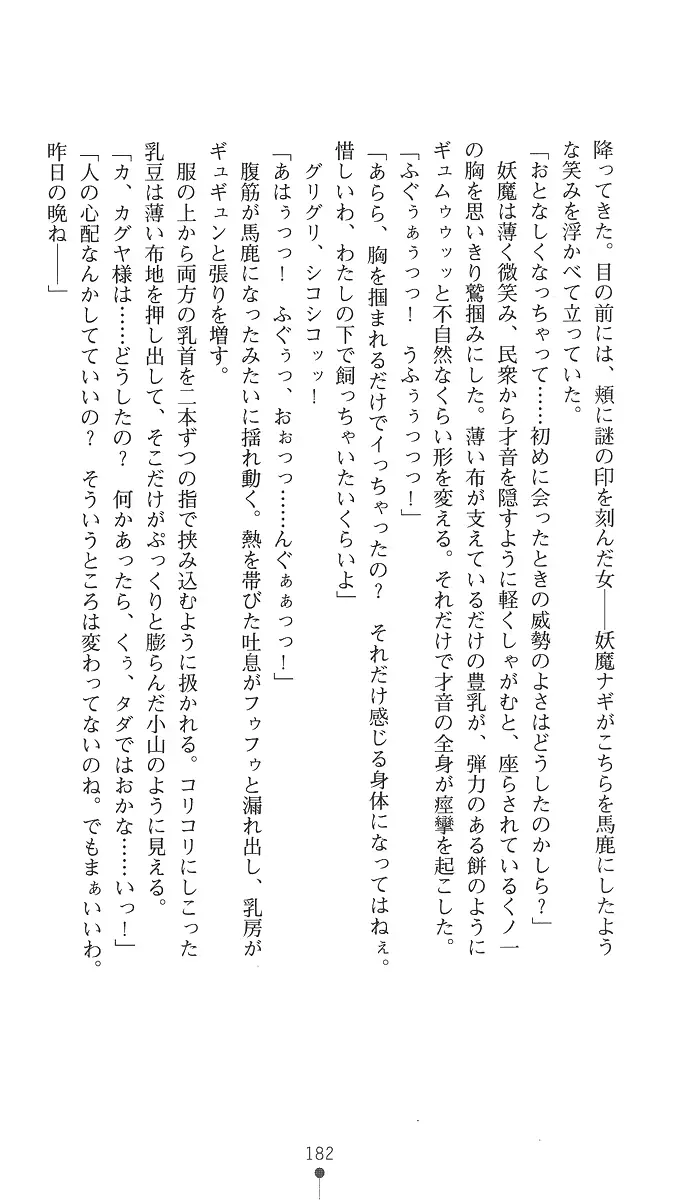 降ってきた。目の前には、頬に謎の印を刻んだ女――妖魔ナギがこちらを馬鹿にしたよう
な笑みを浮かべて立っていた。
「おとなしくなっちゃって……初めに会ったときの威勢のよさはどうしたのかしら？」
妖魔は薄く微笑み、民衆から才音を隠すように軽くしゃがむと、座らされているくノ一
の胸を思いきり鷲掴みにした。薄い布が支えているだけの豊乳が、弾力のある餅のように
ギュムゥゥッッと不自然なくらい形を変える。それだけで才音の全身が痙攣を起こした。
「ふぐぅぁぅっっ！　うふぅぅっっっ！」
「あらら、胸を掴まれるだけでイっちゃったの？　それだけ感じる身体になってはねぇ。
惜しいわ、わたしの下で飼っちゃいたいくらいよ」
グリグリ、シコシコッッ！
「あはぅっっ！　ふぐぅっ、おぉっっ……んぐぁぁっっ！」
腹筋が馬鹿になったみたいに揺れ動く。熱を帯びた吐息がフゥフゥと漏れ出し、乳房が
ギュギュンと張りを増す。
服の上から両方の乳首を二本ずつの指で挟み込むように扱かれる。コリコリにしこった
乳豆は薄い布地を押し出して、そこだけがぷっくりと膨らんだ小山のように見える。
「カ、カグヤ様は……どうしたの？　何かあったら、くぅ、タダではおかな……いっ！」
「人の心配なんかしてていいの？　そういうところは変わってないのね。でもまぁいいわ。
昨日の晩ね――」
182